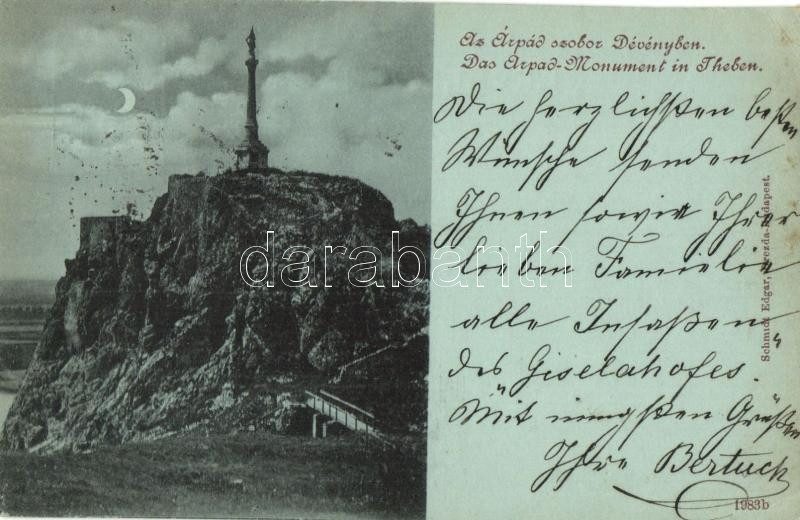 Az Árpád szobor Dévényben.
Das Arpad-Monument in Theben.
Die herzlichsten besten
Wünsche senden
Ihnen sowie Ihrer
lieben Familie
alle Insaßen
des "Giselahofes".
Mit innigsten Grüßen
Ihre Bertuck
Schmidt Edgar, Budapest.
1983b
darabanth